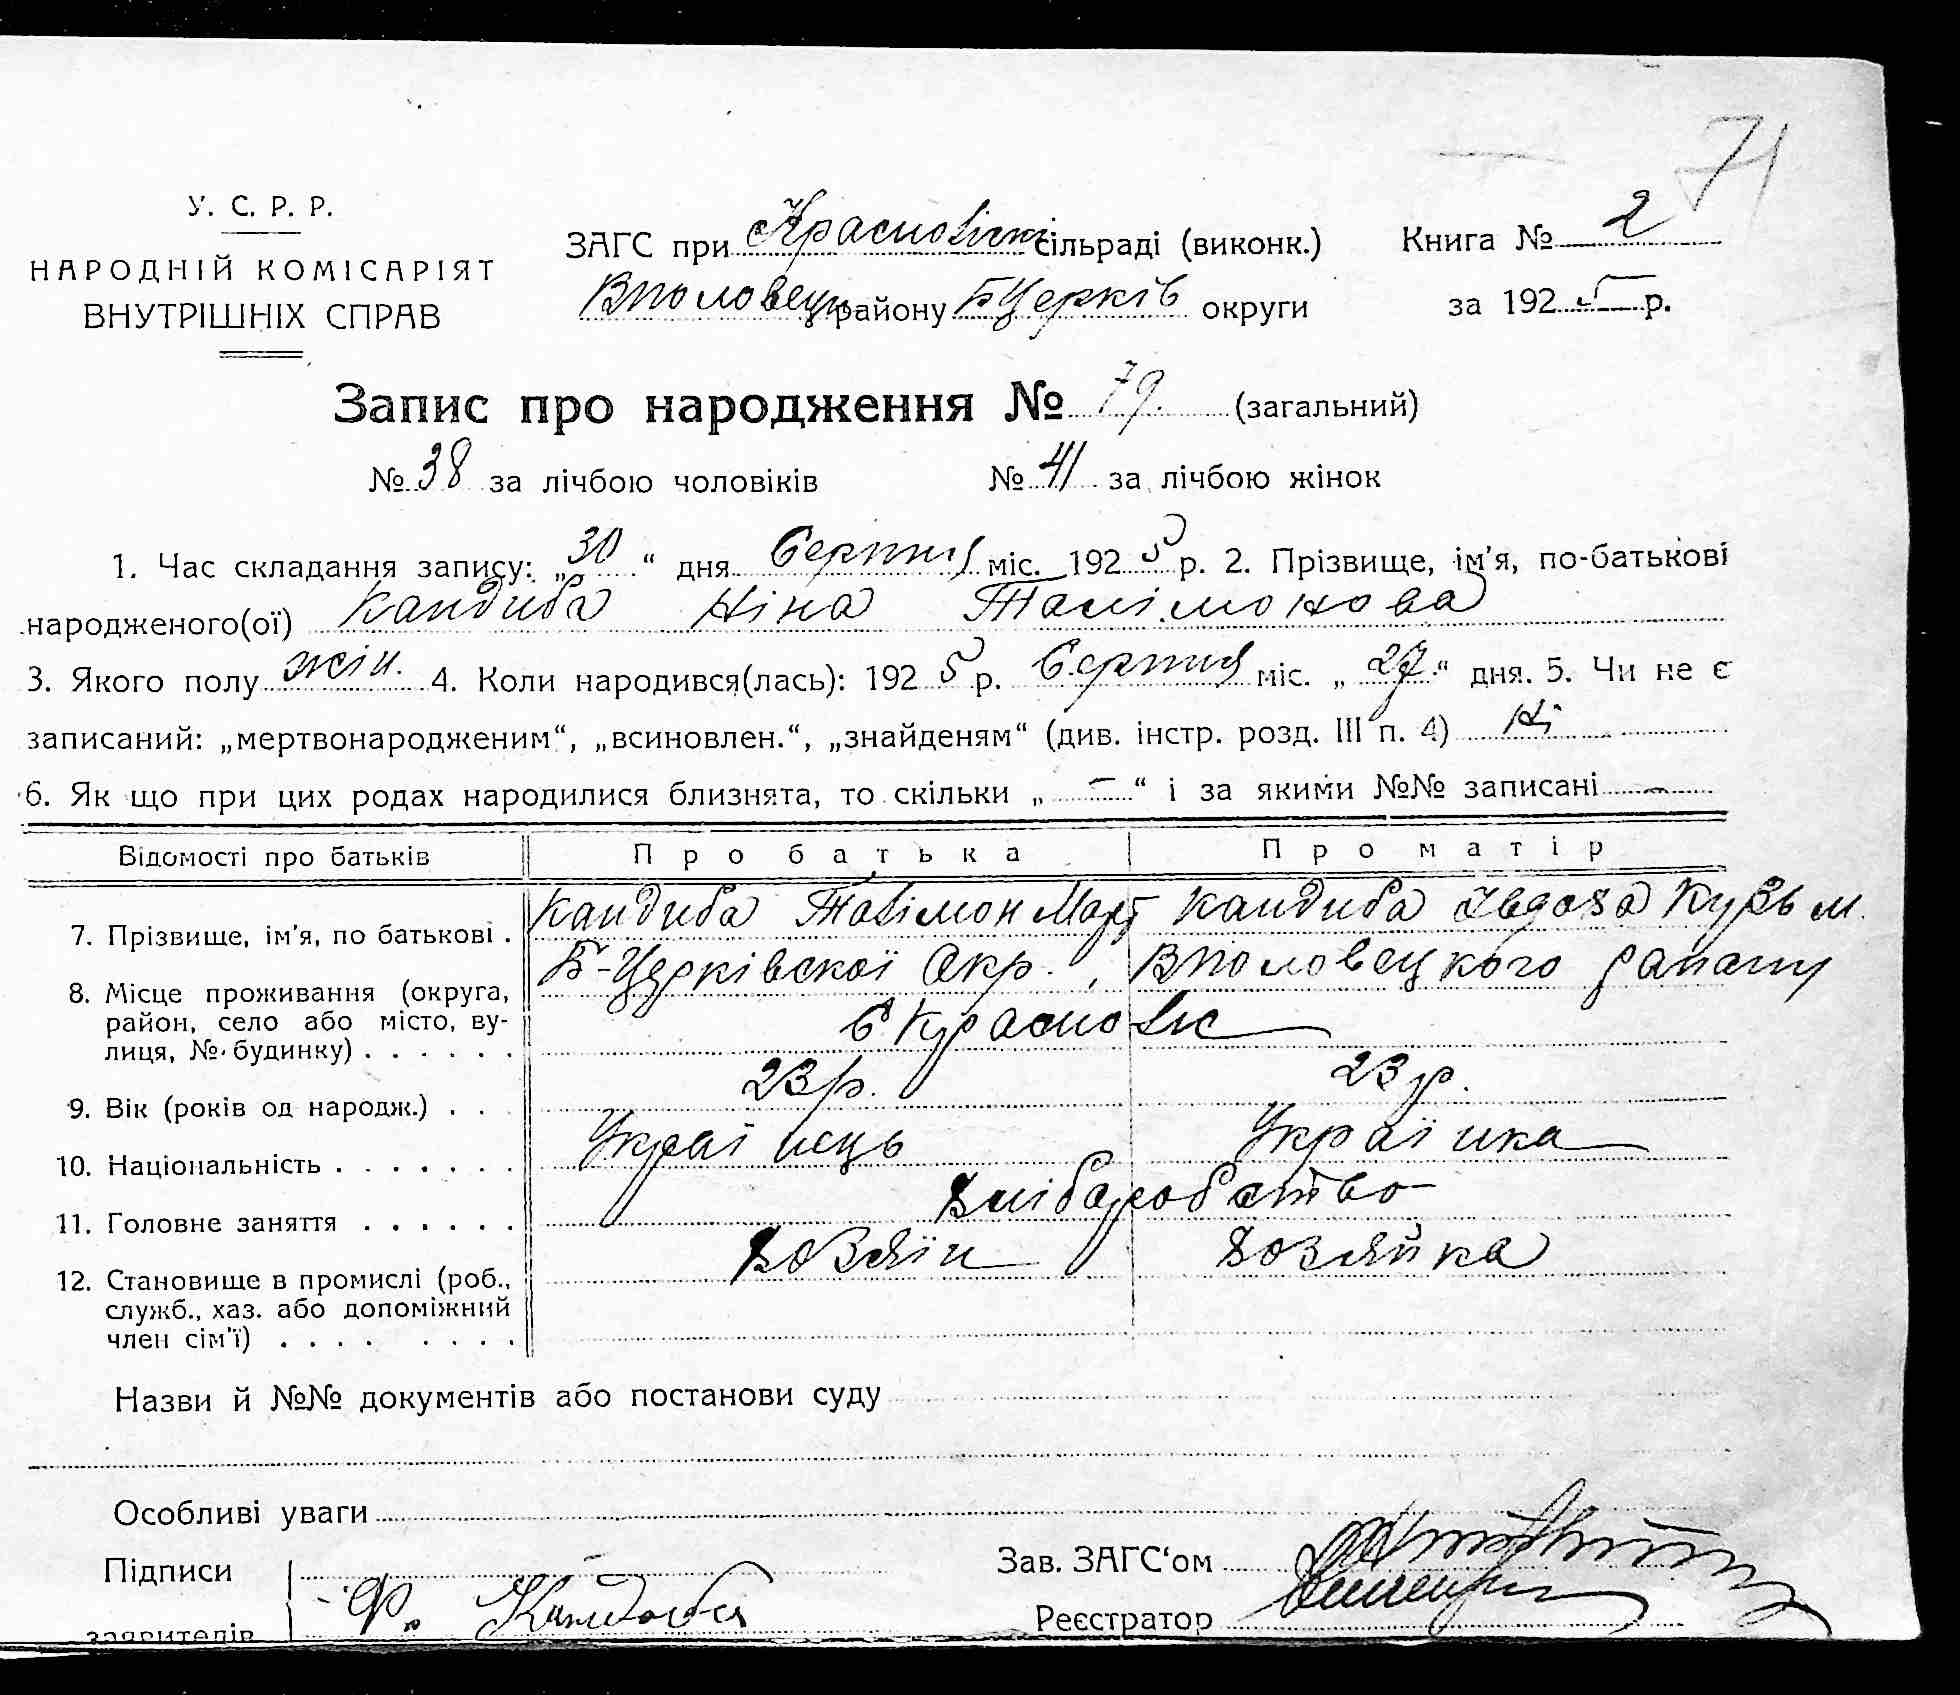 71
У. С. Р. Р.
НАРОДНІЙ КОМІСАРІЯТ
ВНУТРІШНІХ СПРАВ
ЗАГС при Краснолісн сільраді (виконк.) Книга № 2
Вполовецк району БЦерків округи за 1925 р.
Запис про народження № 79. (загальний)
№ 38 за лічбою чоловіків № 41 за лічбою жінок
1. Час складання запису: „30“ дня Серпня міс. 1925 р. 2. Прізвище, ім'я, по-батькові
народженого(ої) Кандиба Ніна Талімонова
3. Якого полу жін. 4. Коли народився(лась): 1925 р. Серпня міс. „27“ дня. 5. Чи не є
записаний: „мертвонародженим“, „всиновлен.“, „знайденям“ (див. інстр. розд. III п. 4) Ні
6. Як що при цих родах народилися близнята, то скільки „ – “ і за якими №№ записані –
Відомості про батьків Про батька Про матір
7. Прізвище, ім'я, по батькові . Кандиба Талімон Март Кандиба Явдоха Кузьм.
8. Місце проживання (округа, Б-Церківської Окр., Вполовецкого району
район, село або місто, ву-
лиця, № будинку) . . . . . . с Краснолис
9. Вік (років од народж.) . . . 23 р. 23 р.
10. Національність . . . . . . . Українець Українка
11. Головне заняття . . . . . . Хліборобство
12. Становище в промислі (роб., Хозяїн Хозяйка
служб., хаз. або допоміжний
член сім'ї) . . . . . . . .
Назви й №№ документів або постанови суду
Особливі уваги
Підписи Зав. ЗАГС'ом
заявителів Ф. Кандиба Реєстратор